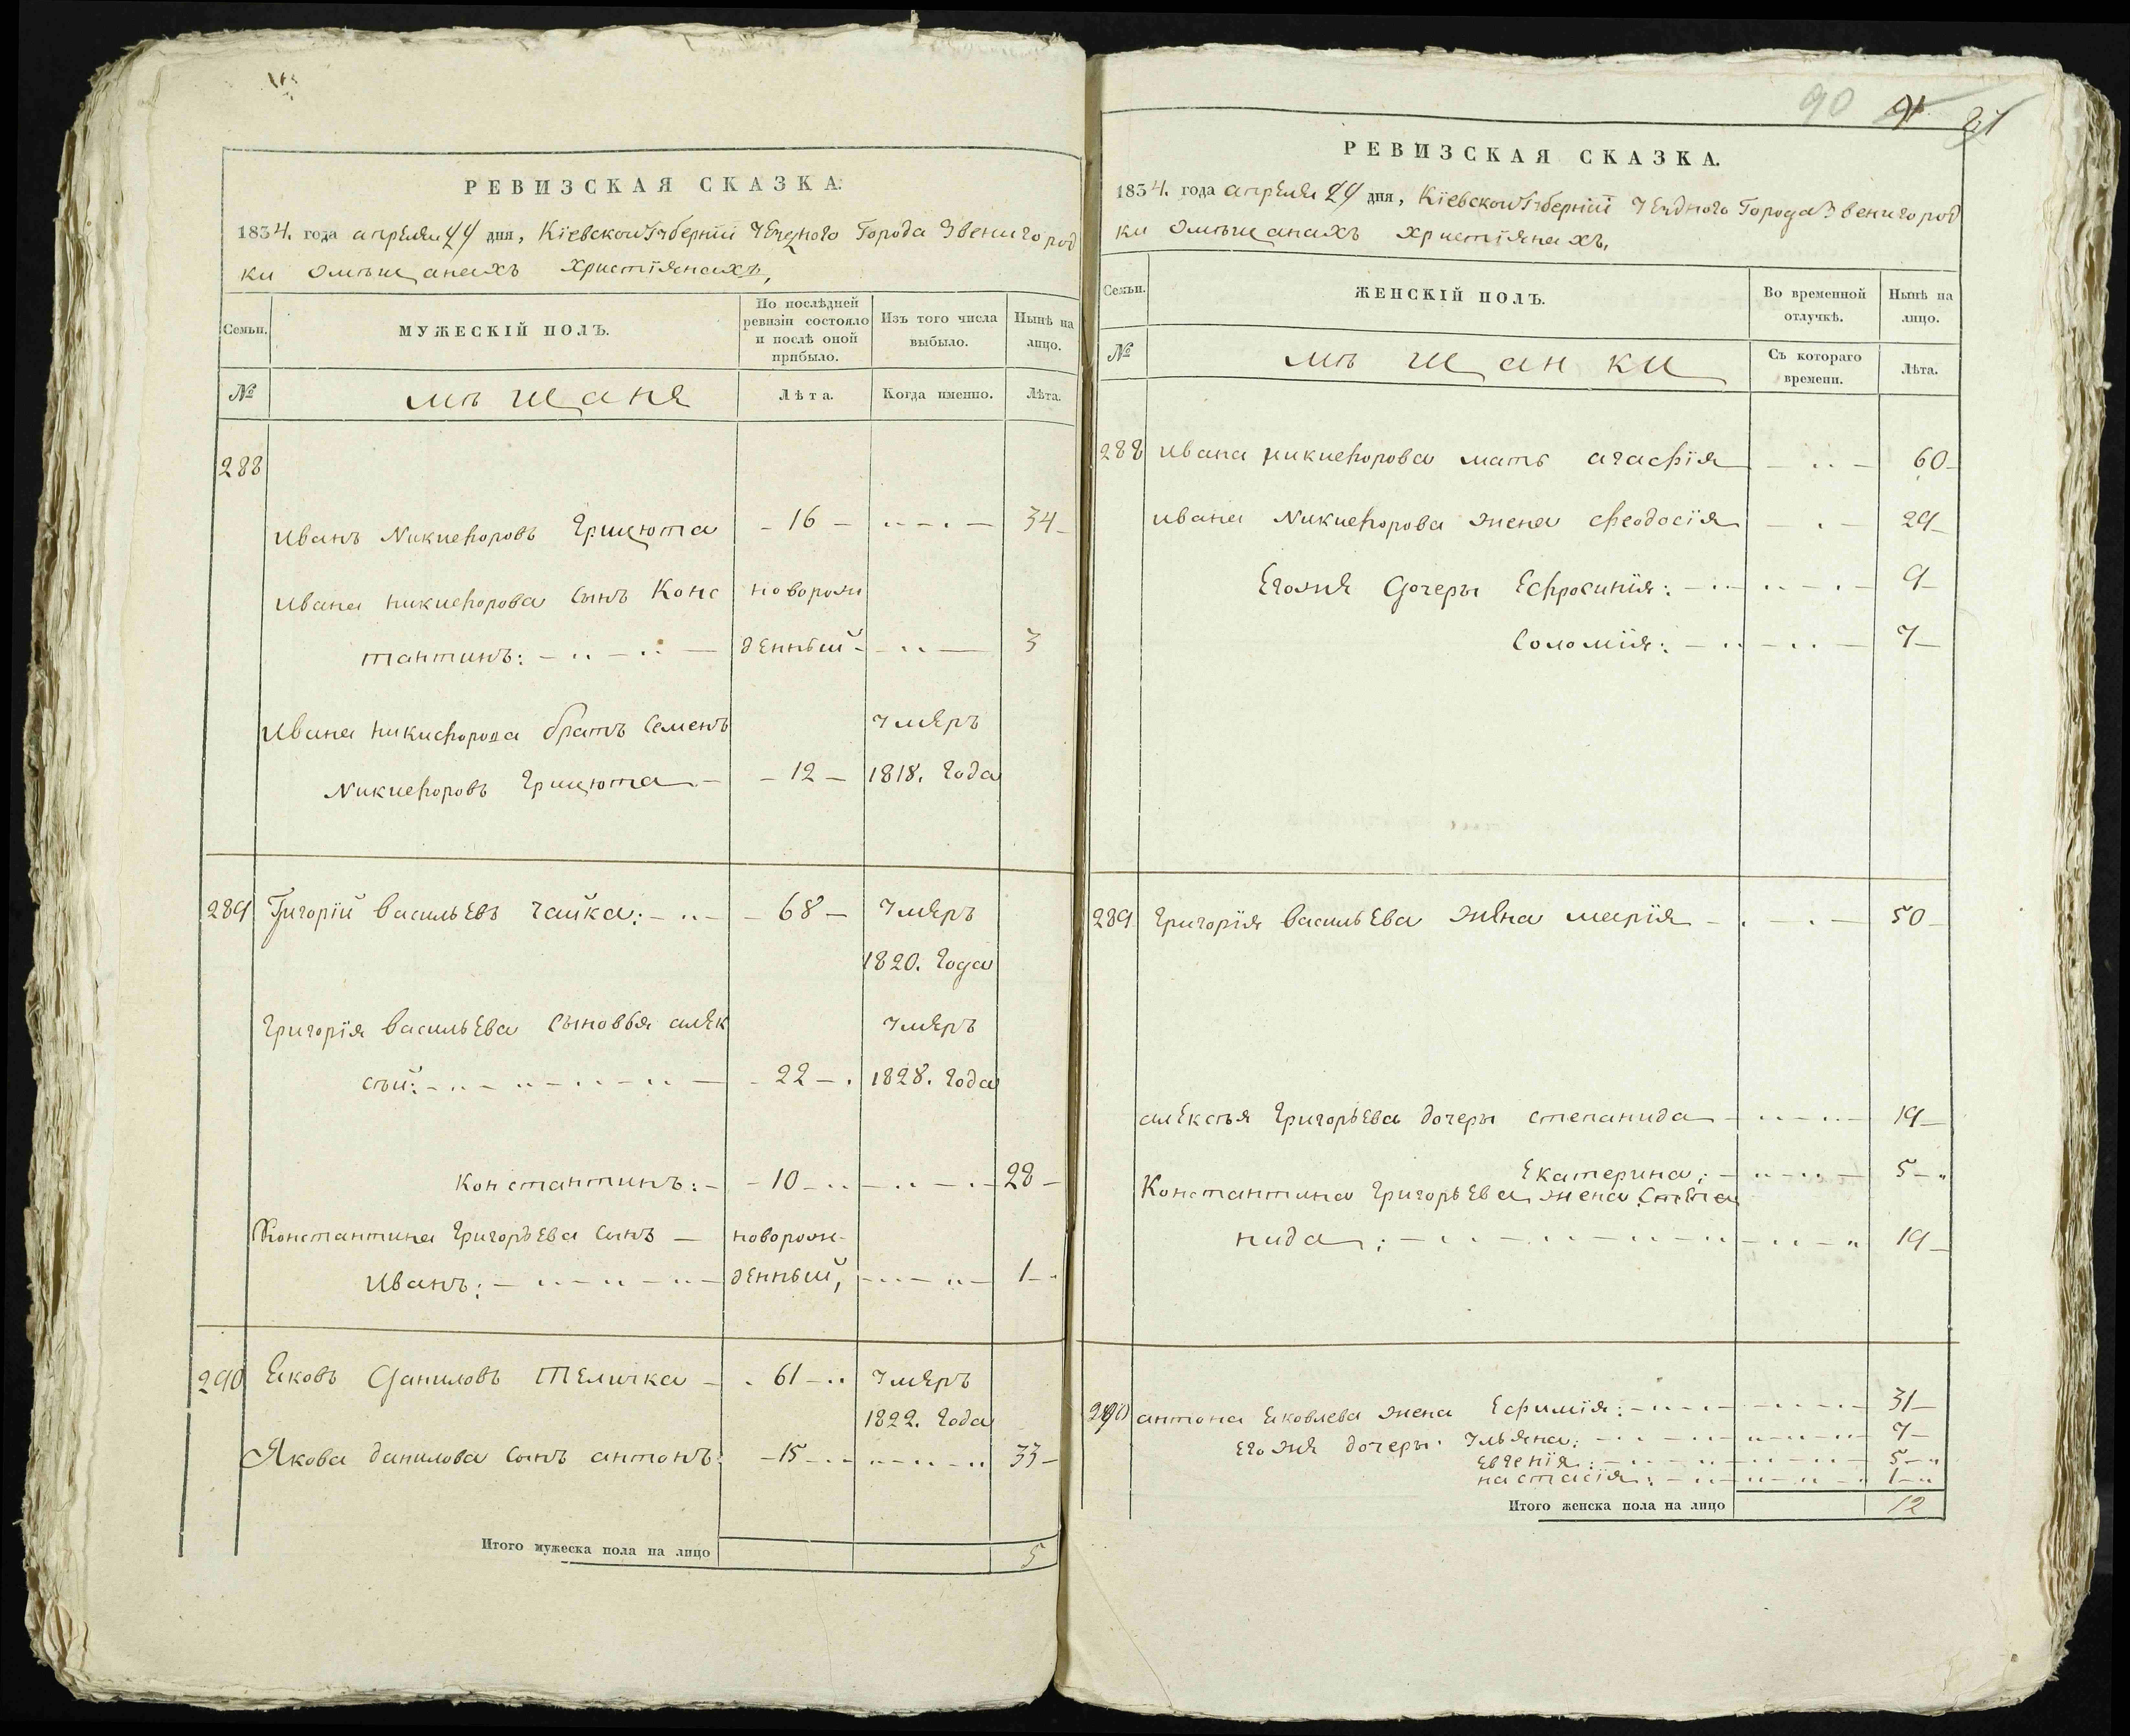 РЕВИЗСКАЯ СКАЗКА.
1834. года апреля 24 дня, Кіевской Губерніи Уезного Города Звенигород
ки омѣщанахъ христіянахъ,
Семьи.
МУЖЕСКІЙ ПОЛЪ.
По послѣдней ревизіи состояло и послѣ оной прибыло.
Изъ того числа выбыло.
Нынѣ на лицо.
№
мѣщаня
Лѣта.
Когда именно.
Лѣта.
288
Иванъ Никифоровъ Грицюта – 16 – 34
Ивана Никифорова сынъ Конс новорож
тантинъ: денный 3
Ивана Никифорова братъ Семенъ умеръ
Никифоровъ Грицюта – 12 – 1818. Года
289 Григорій Васильевъ Чайка: – 68 – умеръ
1820. Года
Григорія Васильева сыновья алек умеръ
сѣй: 22 – 1828. Года
Константинъ: – 10 – 28
Константина Григорьева сынъ – новорож-
Иванъ: денный, 1
290 Яковъ Даниловъ Теличка – 61 – умеръ
1822. Года
Якова данилова сынъ антонъ: – 15 – 33
Итого мужеска пола на лицо 5
90 91 87
РЕВИЗСКАЯ СКАЗКА.
1834. года апреля 24 дня, Кіевской Губерніи Уездного Города Звенигород
ки омѣщанахъ христіянахъ,
Семьи.
ЖЕНСКІЙ ПОЛЪ.
Во временной отлучкѣ.
Нынѣ на лицо.
№
мѣщанки
Съ котораго времени.
Лѣта.
288 Ивана Никифорова мать агафія 60
Ивана Никифорова жена феодосія 29
Егожя Дочеры Ефросинія: 9
Соломія: 7
289 Григорія Васильева жена марія 50
алексѣя Григорьева дочеры степанида 19
Екатерина: 5
Константина Григорьева жена Степа
нида: 19
290 антона Яковлева жена Ефимія: 31
Его жя дочеры: Ульяна: 7
Евгенія: 5
настасія: 1
Итого женска пола на лицо 12